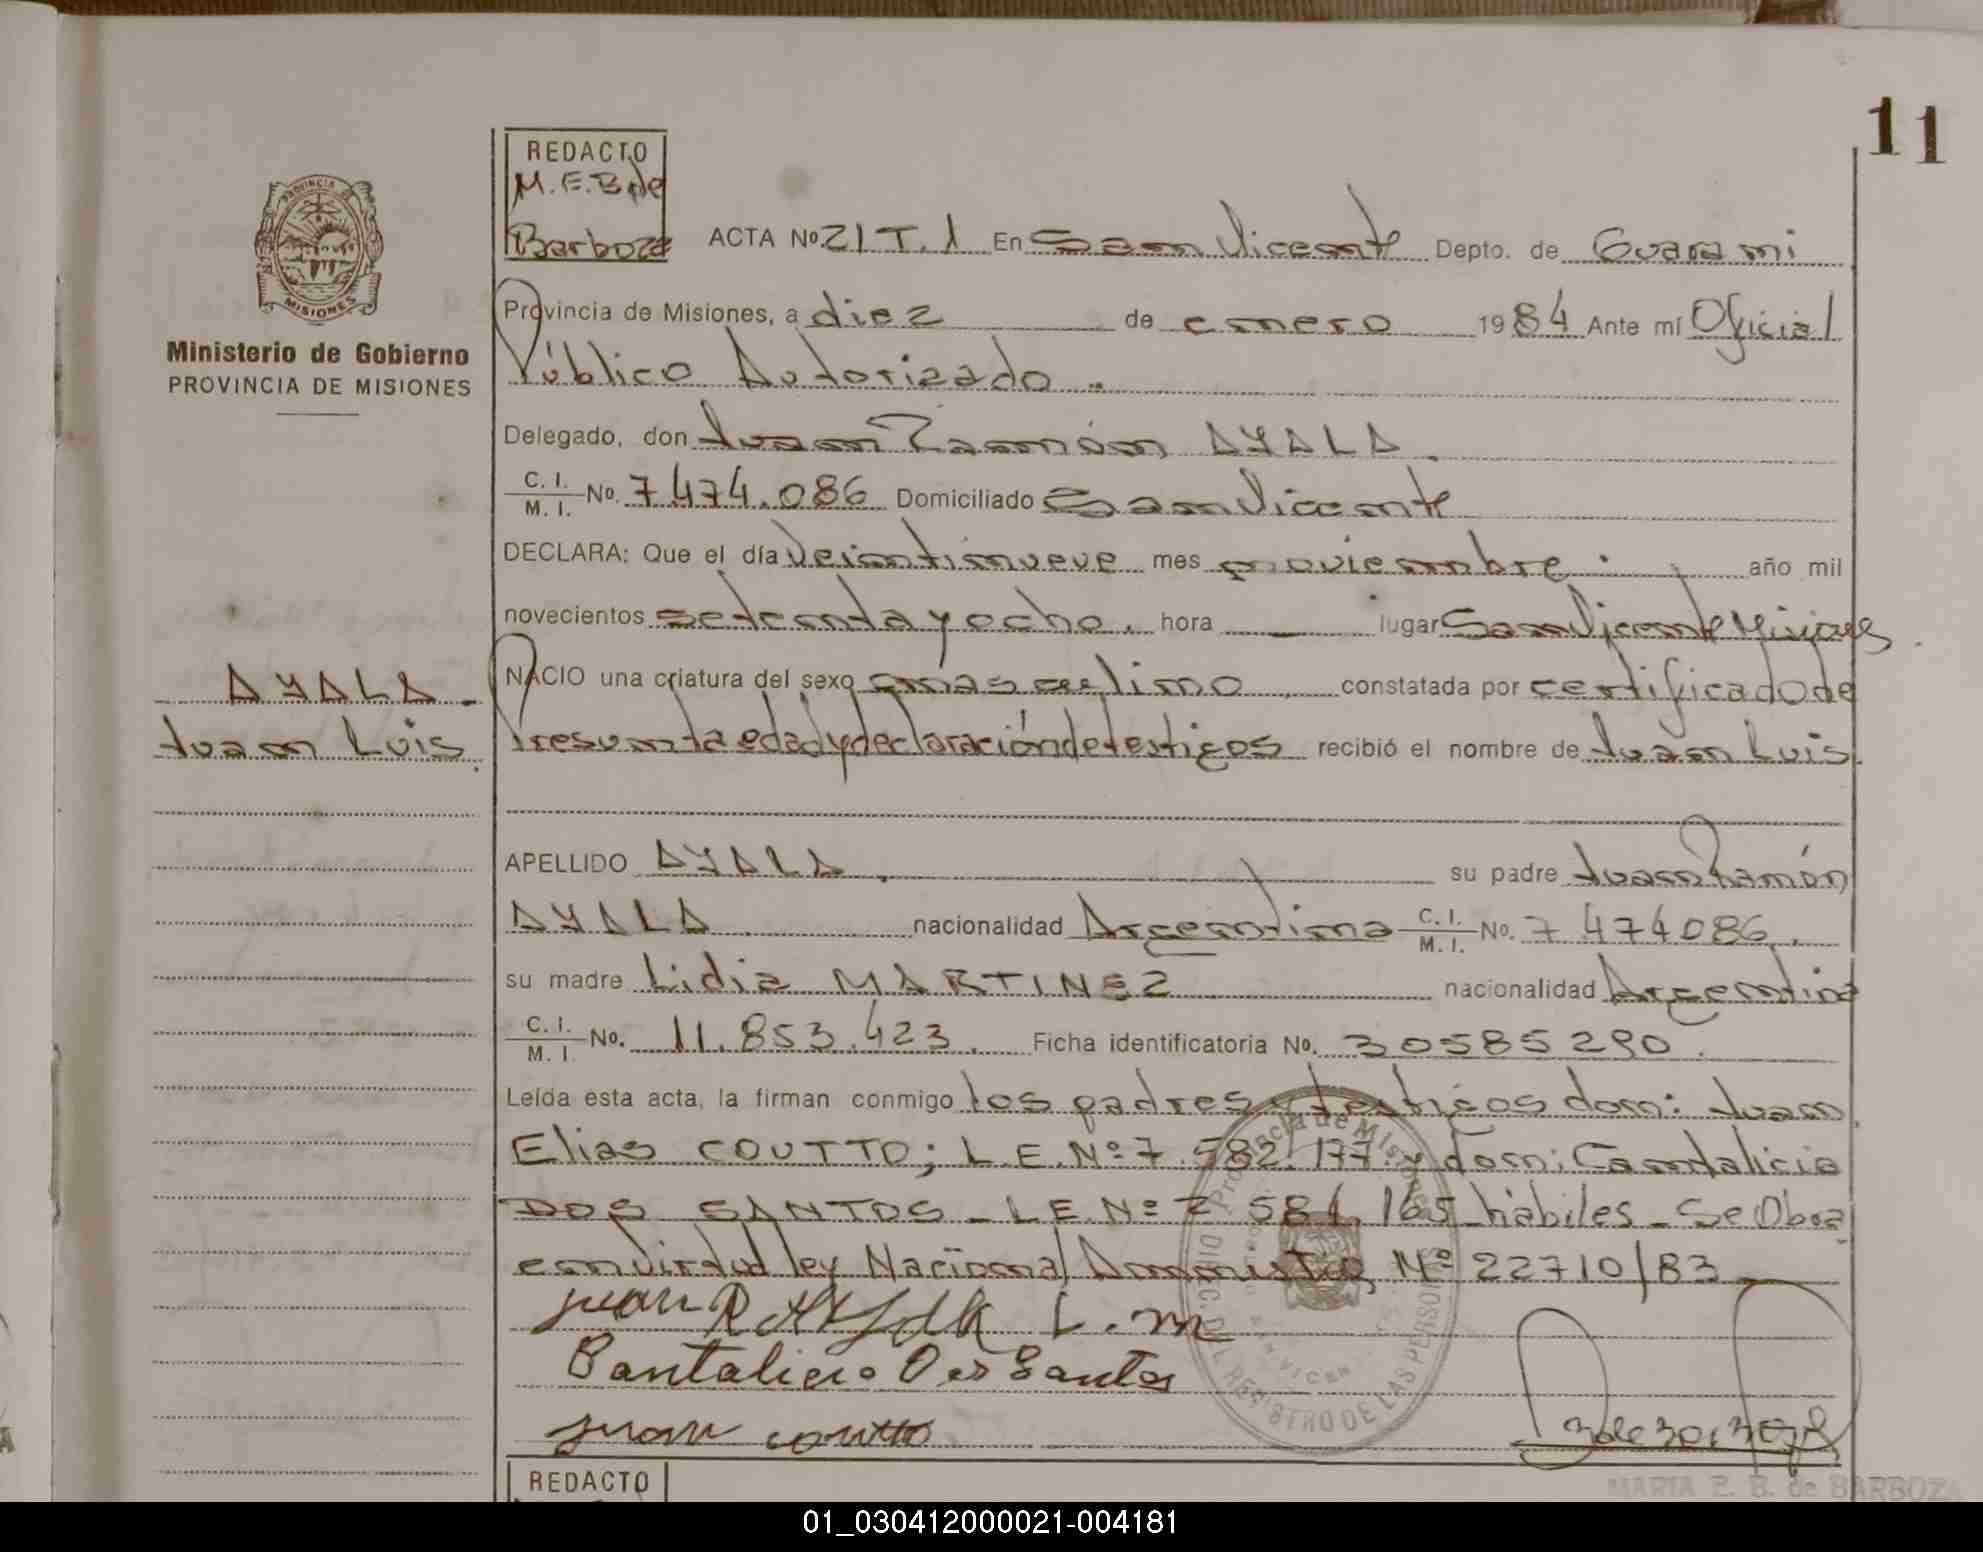 11
REDACTO
M. E. B de
Barboza
ACTA Nº 21 T. 1 En San Vicente Depto. de Guarani
PROVINCIA DE MISIONES
Provincia de Misiones, a diez de enero 1984 Ante mí Oficial
Ministerio de Gobierno
PROVINCIA DE MISIONES
Público Autorizado.
Delegado, don Juan Ramón AYALA.
C. I. / M. I. No. 7.474.086 Domiciliado San Vicente
DECLARA: Que el día veintinueve mes noviembre. año mil
novecientos setenta y ocho. hora — lugar San Vicente Misiones.
AYALA.
Juan Luis.
NACIO una criatura del sexo masculino constatada por certificado de
Presunta edad y declaración de testigos recibió el nombre de Juan Luis.
APELLIDO AYALA. su padre Juan Ramón
AYALA nacionalidad Argentina C. I. / M. I. No. 7.474086.
su madre Lidia MARTINEZ nacionalidad Argentina
C. I. / M. I. No. 11.853.423. Ficha identificatoria No. 30585290.
Leída esta acta, la firman conmigo los padres y testigos don: Juan
Elias COUTTO; L.E.Nº 7.582.177 y don: Cantalicia
DOS SANTOS - L.E.Nº 7.581.165 hábiles - Se Obra
en virtud ley Nacional Amnistia Nº 22710/83
Juan R Ayala L. M
Cantalicio Dos Santos
Juan coutto
DIRECC. DEL REGISTRO DE LAS PERSONAS
Provincia de Misiones
SAN VICENTE
MARIA E. B. de BARBOZA
REDACTO
01_030412000021-004181